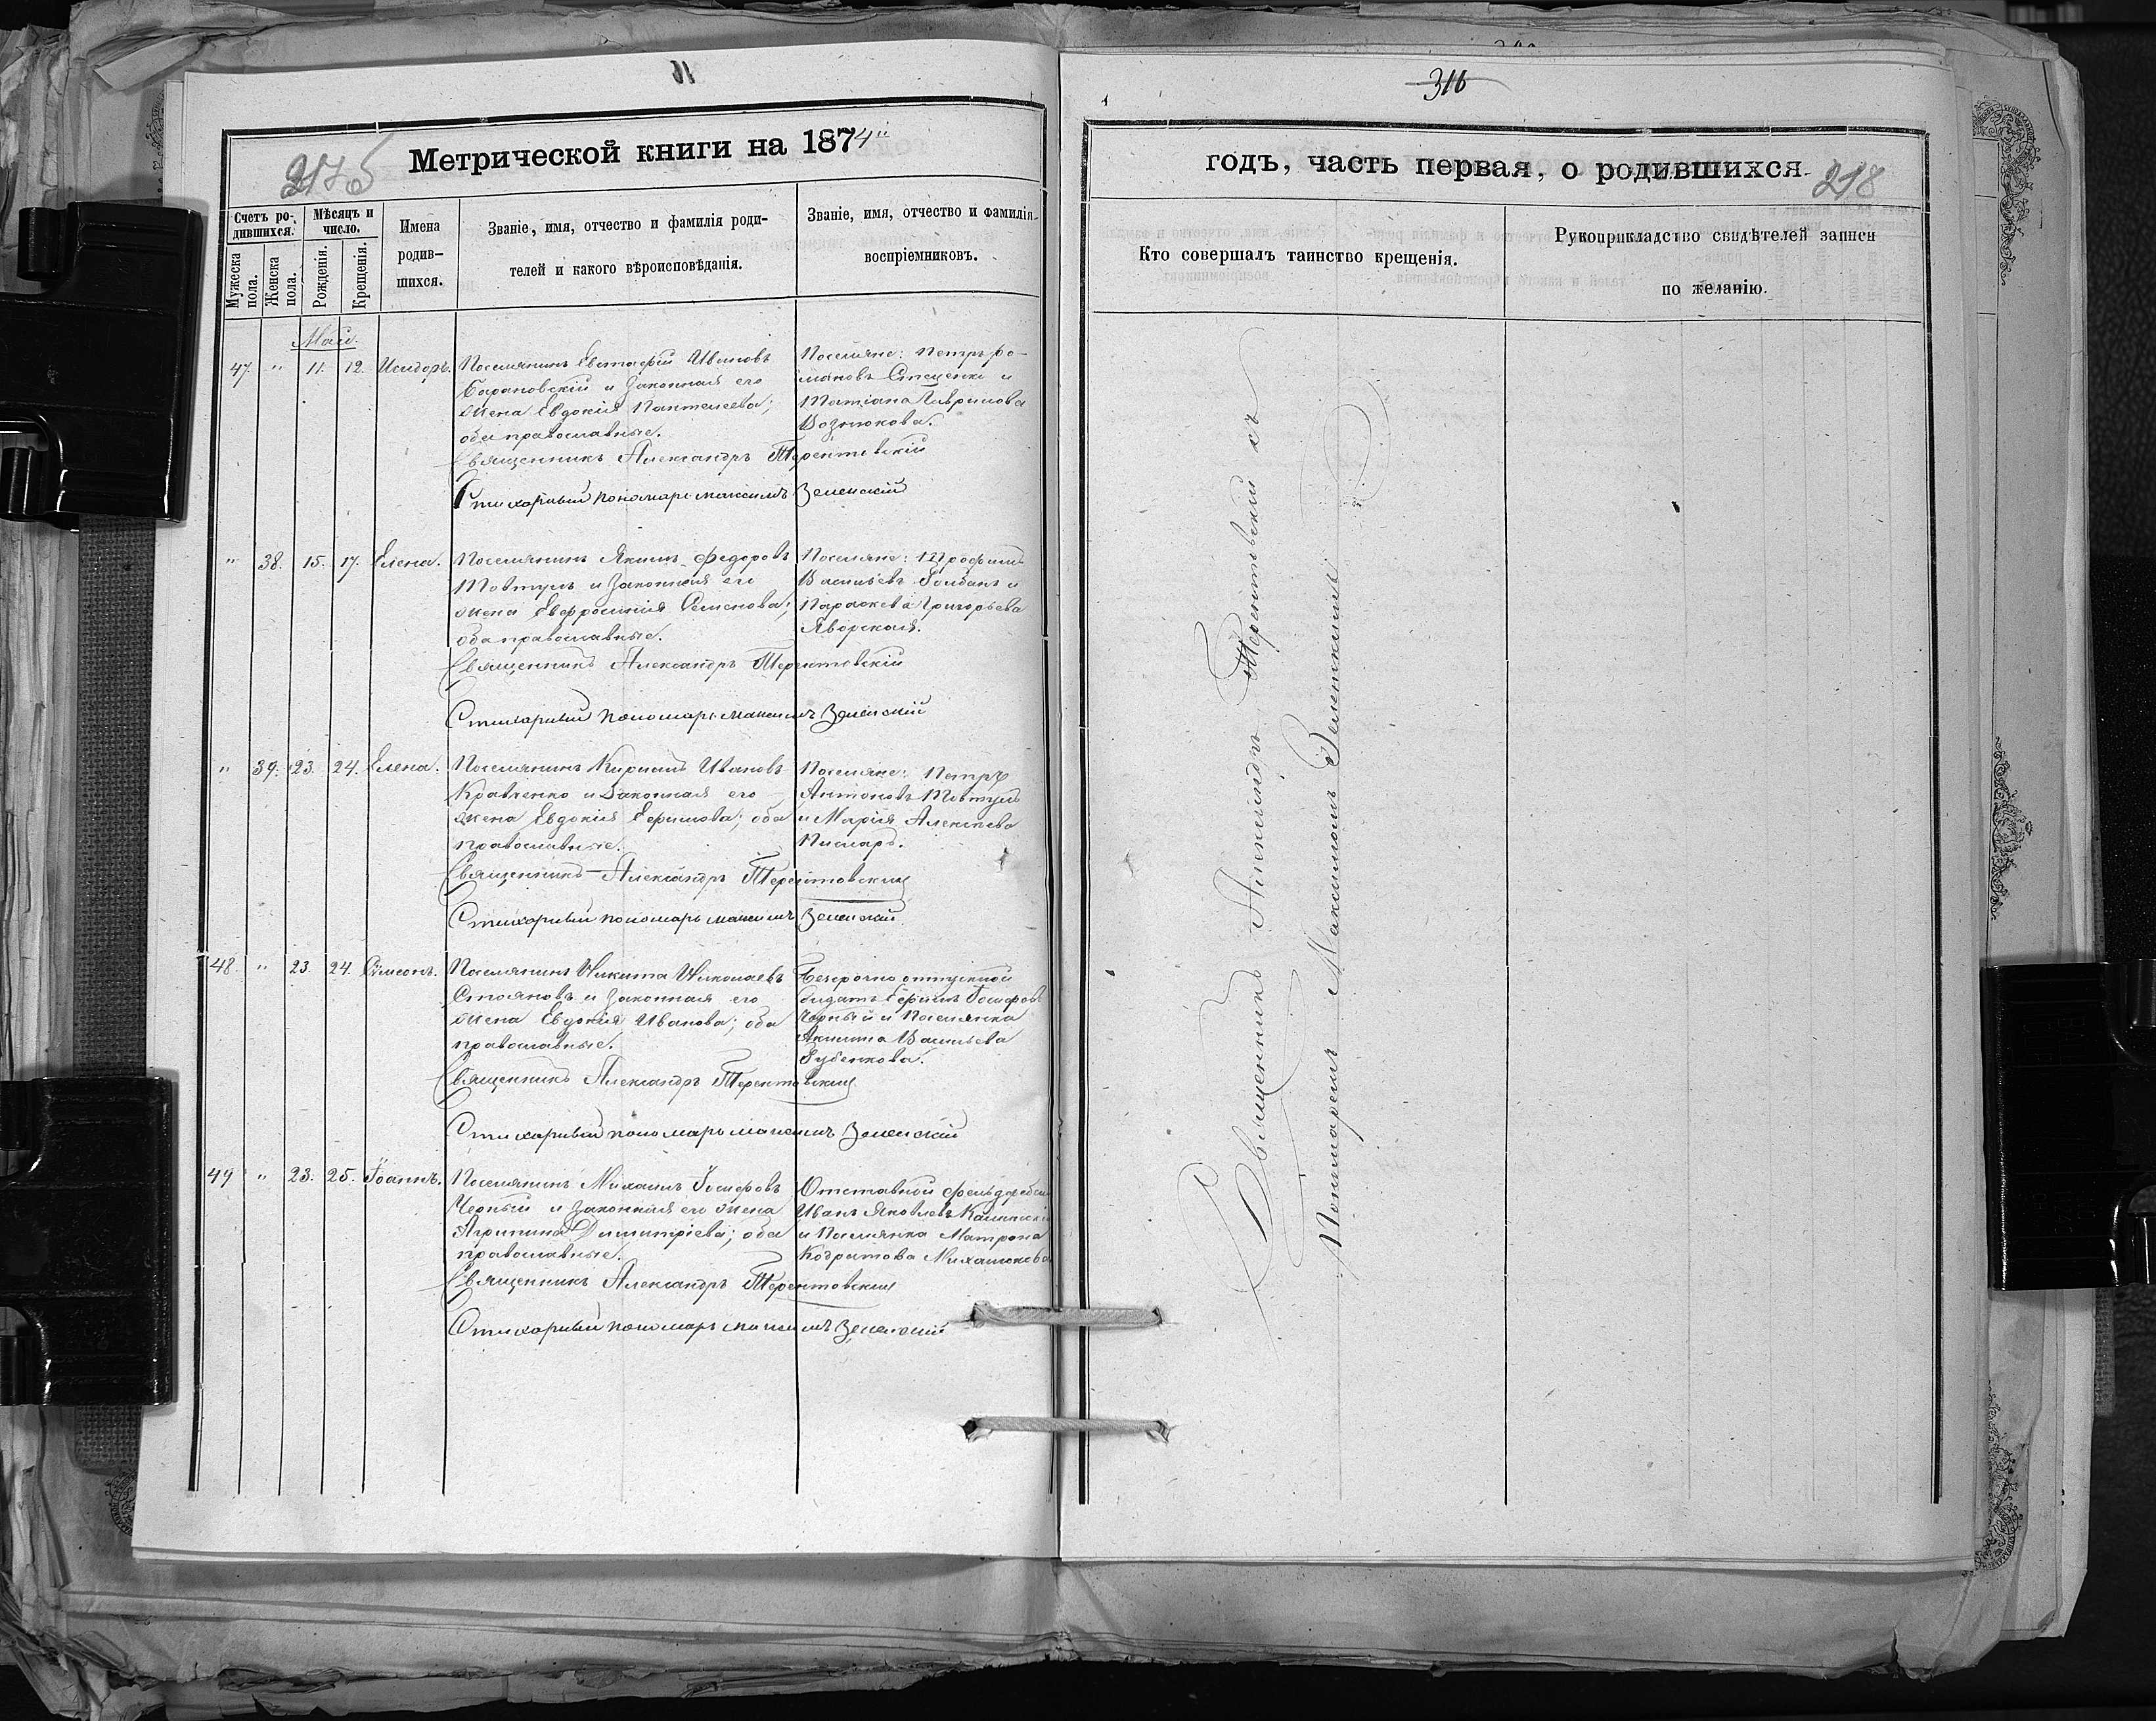 316
Метрической книги на 1874"
217б
Счетъ ро-
дившихся.
Мѣсяцъ и
число.
Имена
родив-
шихся.
Званіе, имя, отчество и фамилія роди-
телей и какого вѣроисповѣданія.
Званіе, имя, отчество и фамилія
воспріемниковъ.
Мужеска
пола.
Женска
пола.
Рожденія.
Крещенія.
Май.
47. " 11. 12. Исидоръ.
Поселянинъ Евстафій Ивановъ
Барановскій и законная его
жена Евдокія Пантелеева;
оба православные.
Поселяне: Петръ Ро-
мановъ Стеценко и
Татіана Гаврилова
Вознюкова.
Священникъ Александръ Терентовскій
Стихарный пономарь Максимъ Зеленскій
" 38. 15. 17. Елена.
Поселянинъ Якимъ Федоровъ
Товтулъ и законная его
жена Евфросинія Семенова;
оба православные.
Поселяне: Трофимъ
Васильевъ Голбанъ и
Параскева Григорьева
Яворская.
Священникъ Александръ Терентовскій
Стихарный пономарь Максимъ Зеленскій
" 39. 23. 24. Елена.
Поселянинъ Кирилъ Ивановъ
Кравченко и законная его
жена Евдокія Ефимова; оба
православные.
Поселяне: Петръ
Антоновъ Товтулъ
и Марія Алексѣева
Писларь.
Священникъ Александръ Терентовскій
Стихарный пономарь Максимъ Зеленскій
48. " 23. 24. Симеонъ.
Поселянинъ Никита Николаевъ
Стояновъ и законная его
жена Евдокія Иванова; оба
православные.
Безсрочно отпускной
солдатъ Ефимъ Іосифовъ
Чорный и поселянка
Акилина Васильева
Губенкова.
Священникъ Александръ Терентовскій
Стихарный пономарь Максимъ Зеленскій
49 " 23. 25. Іоаннъ.
Поселянинъ Михаилъ Іосифовъ
Черный и законная его жена
Агрипина Димитріева; оба
православные.
Отставной
Иванъ Яковлевъ
и поселянка Матрона
Кодратова Михалюкова
Священникъ Александръ Терентовскій
Стихарный пономарь Максимъ Зеленскій
годъ, часть первая, о родившихся.
218
Кто совершалъ таинство крещенія.
Рукоприкладство свидѣтелей записи
по желанію.
Священникъ Александръ Терентовскій съ
Пономаремъ Максимомъ Зеленскимъ